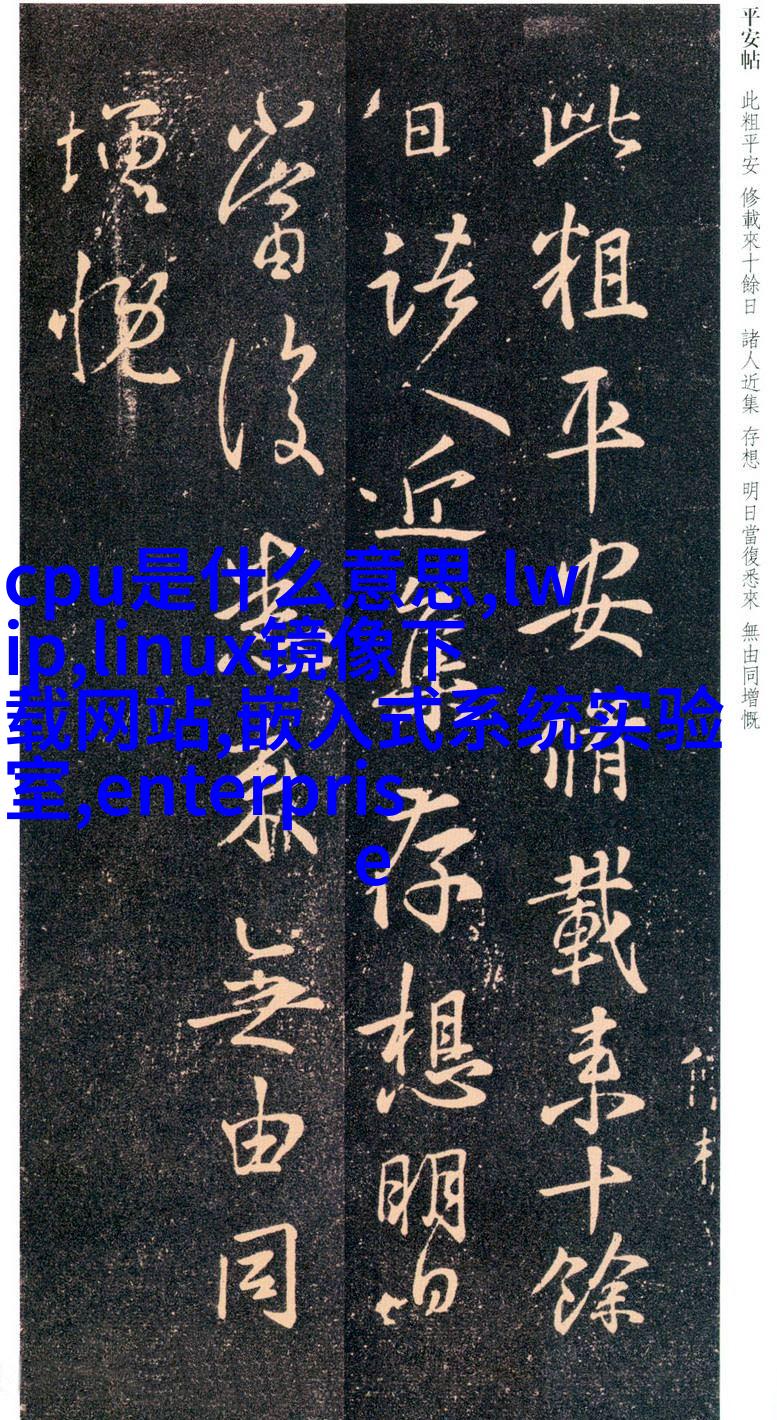 平安帖 此粗平安 修載來十餘日 諸人近集 存想 明日當復悉來 無由同增慨
此粗平安脩載来十餘
日諸人近集存想明日
當復悉來無由同
增慨
cpu是什么意思,lw
ip,linux镜像下
载网站,嵌入式系统实验
室,enterpris
e